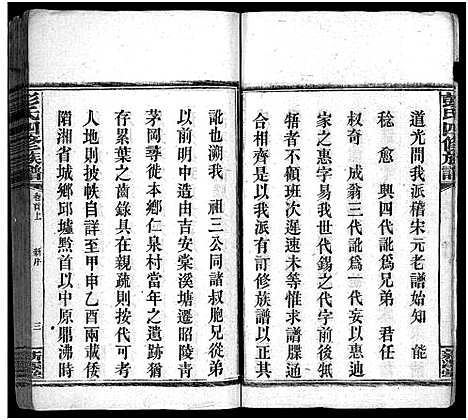 彭氏四修族譜
道光間我派稽宋元老譜始知 能
稔 愈 興四代訛爲兄弟 君任
叔奇 成翁三代訛爲一代妄以惠迪
家之惠字易我世錫之代字前後倒
牾者不顧班次遲速未等惟求譜牒通
合相齊是以我于有訂修族譜以正其
訛也溯我 祖三公同諸叔胞兄從弟
以前明中造吉安棠溪塘遷昭陵青
茅岡尋徙本鄉仁泉村當年之遺跡猶
存累葉之齒錄具在親疏則按代可考
人地則披帙自詳至甲申乙酉兩載倭
陷湘省城鄉邱墟黔首以中原鼎沸時
彭氏四修族譜
卷首上
新序
三